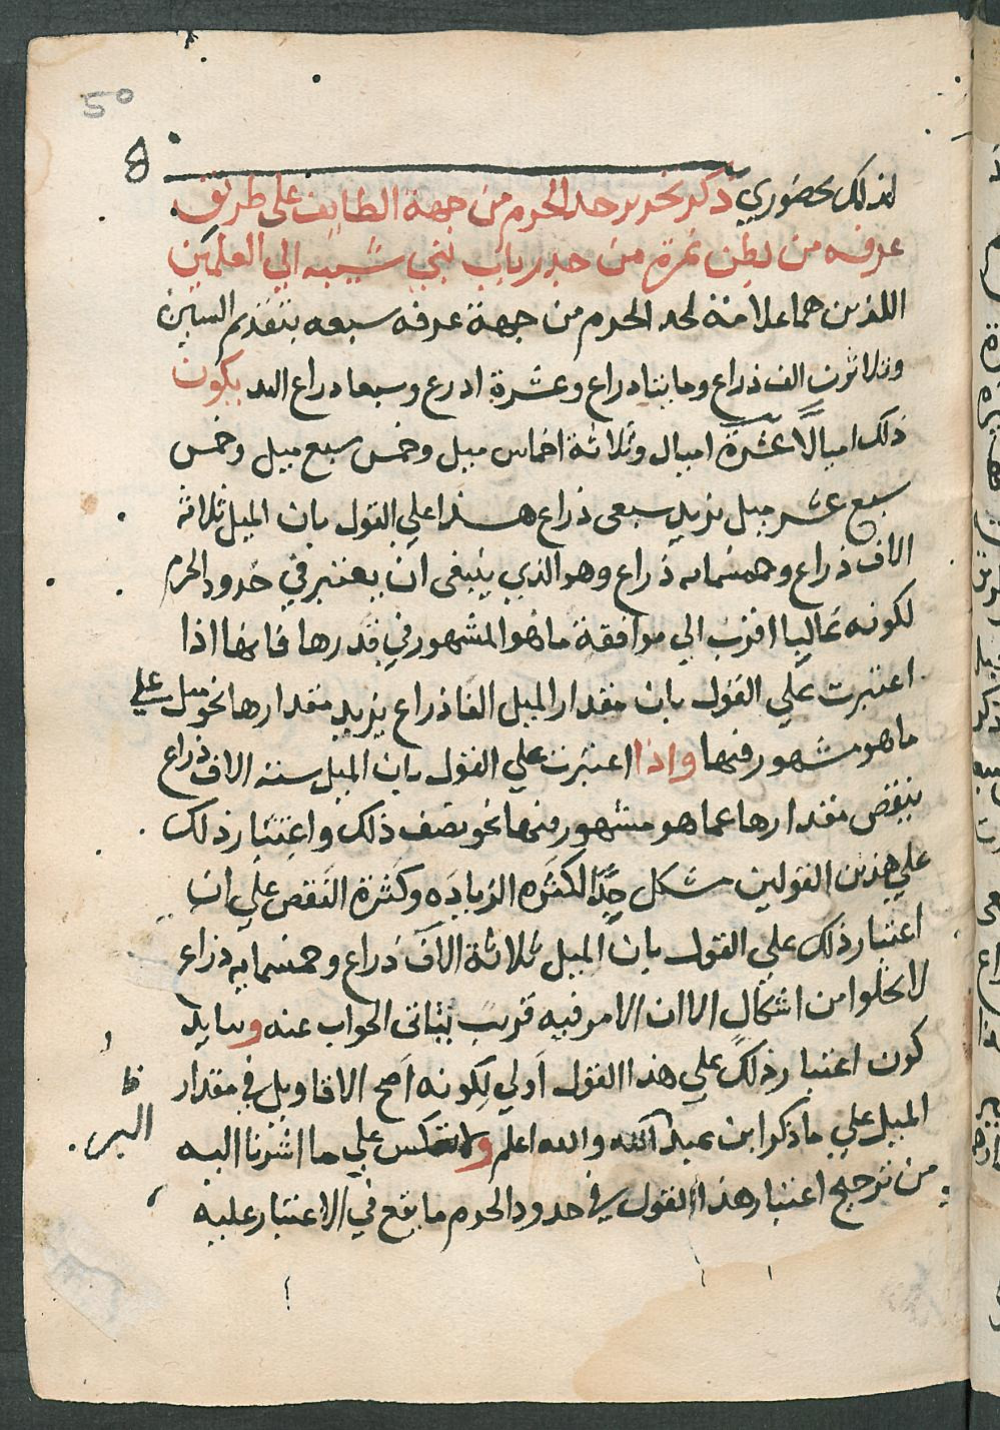 50
8
لذلك بحضوري ذكر تحرير حد الحرم من جهة الطايف على طريق
عرفه من بطن نمرة من جدر باب بني شيبه الي العلمين
اللذين هما علامة لحد الحرم من جهة عرفه سبعه بتقديم السين
وثلاثون الف ذراع وماىتا ذراع وعشرة اذرع وسبعا ذراع اليد يكون
ذلك اميالا عشرة اميال وثلاثة اخماس ميل وخمس سبع ميل وخمس
سبع عشر ميل يزيد سبعى ذراع هذا علي القول بان الميل ثلاثة
الاف ذراع وخمسمايه ذراع وهو الذي ينبغى ان يعتبر في حدود الحرم
لكونه غالبا اقرب الي موافقة ما هو المشهور في قدرها فانها اذا
اعتبرت علي القول بان مقدار الميل الفا ذراع يزيد مقدارها نحو ميل علي
ما هو مشهور فيها واذا اعتبرت علي القول بان الميل ستة الاف ذراع
ينقص مقدارها عما هو مشهور فيها نحو نصف ذلك واعتبار ذلك
علي هذين القولين مشكل جدا لكثره الزياده وكثرة النقص علي ان
اعتبار ذلك علي القول بان الميل ثلاثة الاف ذراع وخمسمايه ذراع
لا يخلوا من اشكال الا ان الامر فيه قريب يتاتى الجواب عنه ويتايد
كون اعتبار ذلك علي هذا القول اولي لكونه اصح الاقاويل في مقدار
الميل علي ما ذكر ابن عبد الله والله اعلم ولا ىعكس علي ما اشرنا اليه
من ترجيح اعتبار هذا القول في حدود الحرم ما يقع في الاعتبار عليه